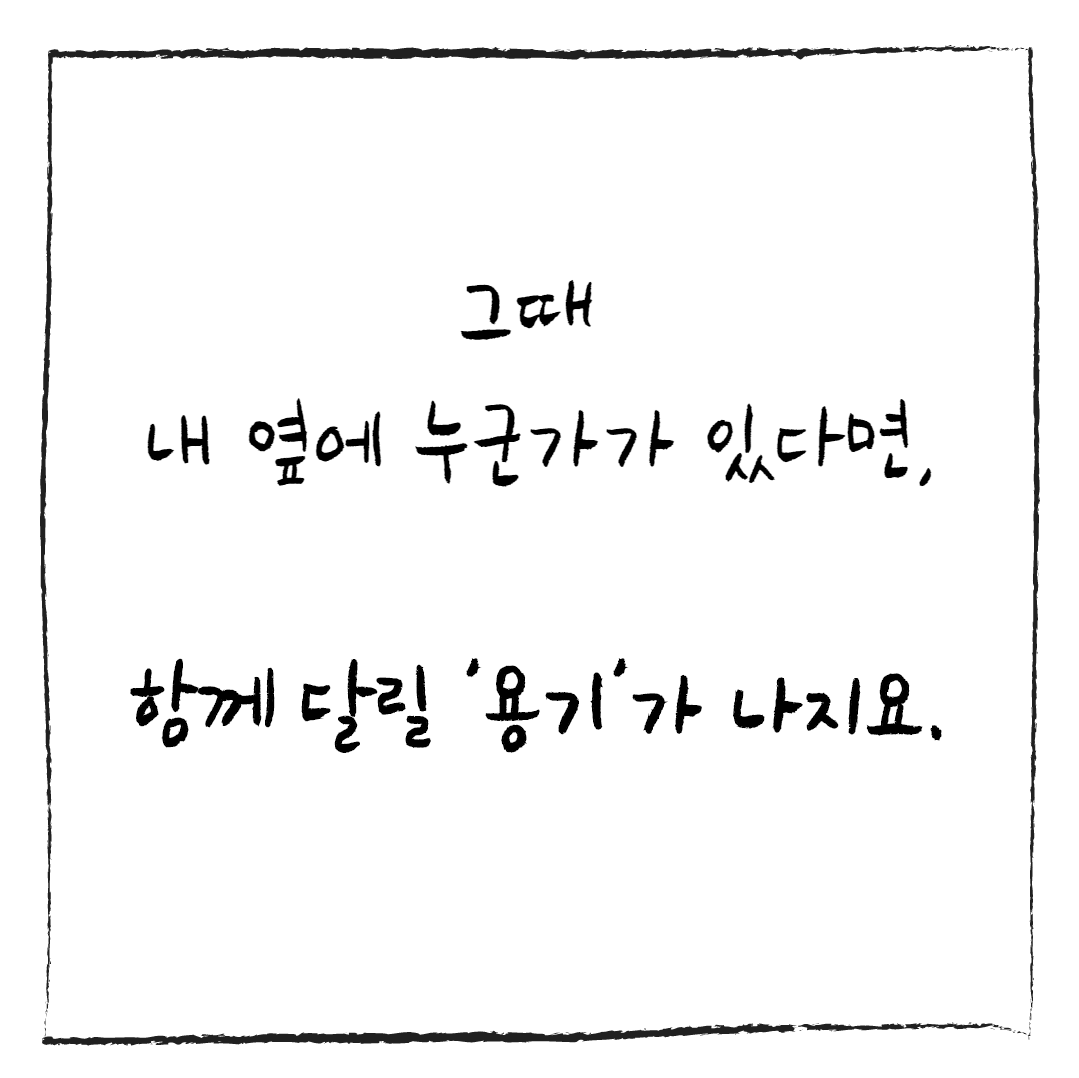 그때
내 옆에 누군가가 있다면,
함께 달릴 '용기'가 나지요.